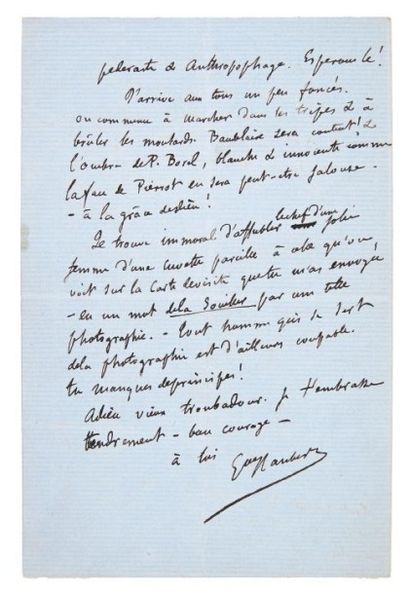 pederaste & Anthropophage. Esperons le!
J'arrive aux tons un peu foncés.
on commence à marcher dans les tripes & à
brûler les moutards. Baudelaire sera content! &
l'ombre de P. Borel, blanche & innocente comme
la face de Pierrot en sera peut-être jalouse.
- à la grâce de dieu!
Je trouve immoral d'affubler le chef d'une jolie
femme d'une cuvette pareille à celle qu'on
voit sur la Carte de visite que tu m'as envoyé
- en un mot de la souiller par une telle
photographie. - tout homme qui se sert
de la photographie est d'ailleurs coupable.
tu manques de principes!
Adieu vieux troubadour. je t'embrasse
tendrement - bon courage -
à toi Gve Flaubert